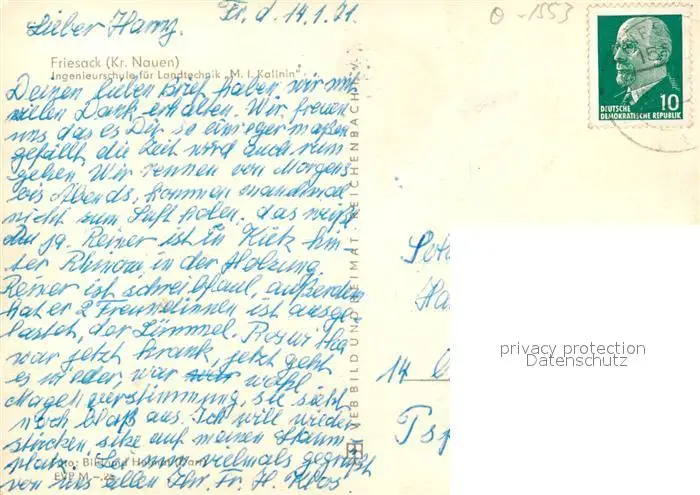 Fr. d. 14.1.71
Lieber Harry.
Friesack (Kr. Nauen)
Ingenieurschule für Landtechnik „M. I. Kalinin"
Deinen lieben Brief haben wir mit
vielen Dank erhalten. Wir freuen
uns das es Dir so einigermaßen
gefällt, die Zeit wird auch rum
gehen. Wir rennen von Morgens
bis Abends, kommen manchmal
nicht zum Luft holen, das weißt
Du ja. Reiner ist in Kietz hin-
ter Rhinow in der Holzung.
Reiner ist schreibfaul, außerdem
hat er 2 Freundinnen ist ausge-
lastet, der Lümmel. Roswitha
war jetzt krank, jetzt geht
es wieder, war wohl
Magenverstimmung, sie sieht
noch blaß aus. Ich will wieder
stricken sitze auf meinen Stamm
platz. Sei nun vielmals gegrüßt
von uns allen Ihr. Fr. H. Klos
Foto: Bild und Heimat
EVP M –.25
VEB BILD UND HEIMAT REICHENBACH I. V.
0-1553
10
DEUTSCHE
DEMOKRATISCHE REPUBLIK
14
privacy protection
Datenschutz